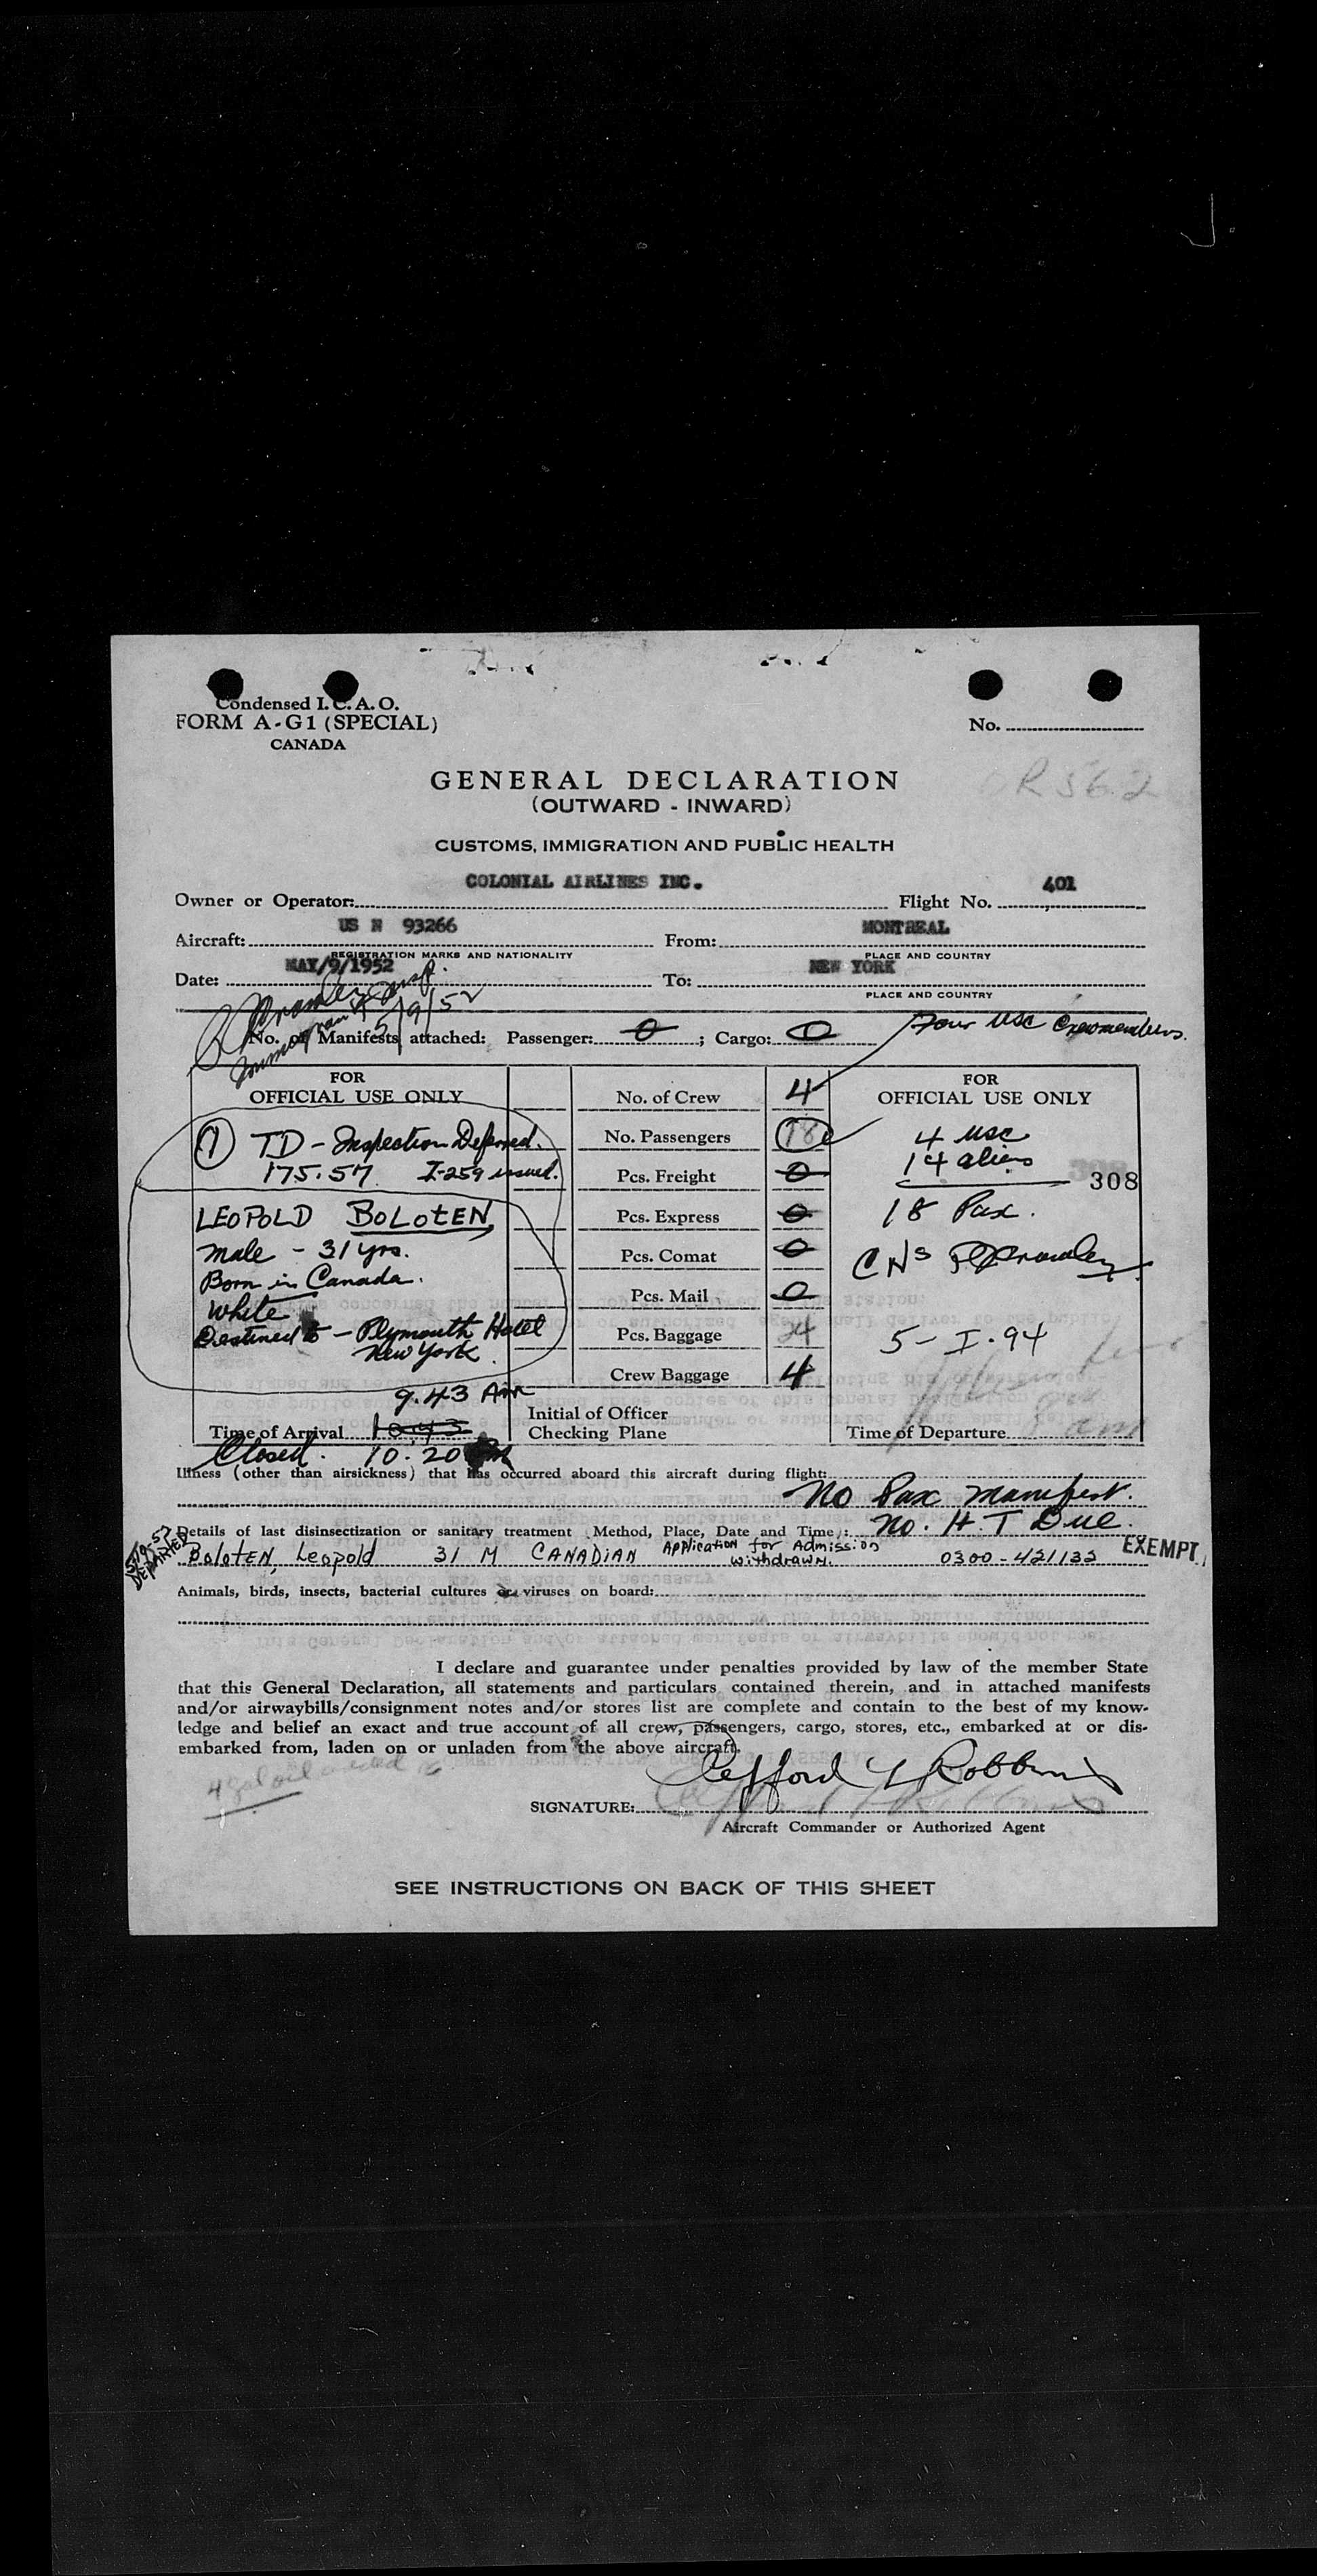 Condensed I.C.A.O.
FORM A-G1 (SPECIAL)
CANADA
No.
OR 562
GENERAL DECLARATION
(OUTWARD - INWARD)
CUSTOMS, IMMIGRATION AND PUBLIC HEALTH
Owner or Operator: COLONIAL AIRLINES INC. Flight No. 401
Aircraft: US N 93266 From: MONTREAL
REGISTRATION MARKS AND NATIONALITY PLACE AND COUNTRY
Date: MAY/9/1952 To: NEW YORK
PLACE AND COUNTRY
5/9/52
No. of Manifests attached: Passenger: 0 ; Cargo: 0
Four USC Crewmembers.
FOR
OFFICIAL USE ONLY
No. of Crew 4
FOR
OFFICIAL USE ONLY
1 TD - Inspection Deferred.
175.57 I-259 issued.
No. Passengers 18
4 USC
14 aliens
Pcs. Freight 0
308
LEOPOLD BOLOTEN
Pcs. Express 0
18 Pax.
male - 31 yrs.
Pcs. Comat 0
Born in Canada.
White
Pcs. Mail 0
Destined to - Plymouth Hotel
New York.
Pcs. Baggage 24
5-I-94
Crew Baggage 4
9.43 AM
Time of Arrival 10.43
Initial of Officer
Checking Plane
Time of Departure
Closed. 10.20
Illness (other than airsickness) that has occurred aboard this aircraft during flight:
No Pax manifest.
Details of last disinsectization or sanitary treatment Method, Place, Date and Time: No. H.T Due.
DEPARTED
Boloten, Leopold 31 M CANADIAN Application for Admission withdrawn. 0300-421133 EXEMPT
Animals, birds, insects, bacterial cultures or viruses on board:
I declare and guarantee under penalties provided by law of the member State
that this General Declaration, all statements and particulars contained therein, and in attached manifests
and/or airwaybills/consignment notes and/or stores list are complete and contain to the best of my know-
ledge and belief an exact and true account of all crew, passengers, cargo, stores, etc., embarked at or dis-
embarked from, laden on or unladen from the above aircraft.
SIGNATURE:
Aircraft Commander or Authorized Agent
SEE INSTRUCTIONS ON BACK OF THIS SHEET